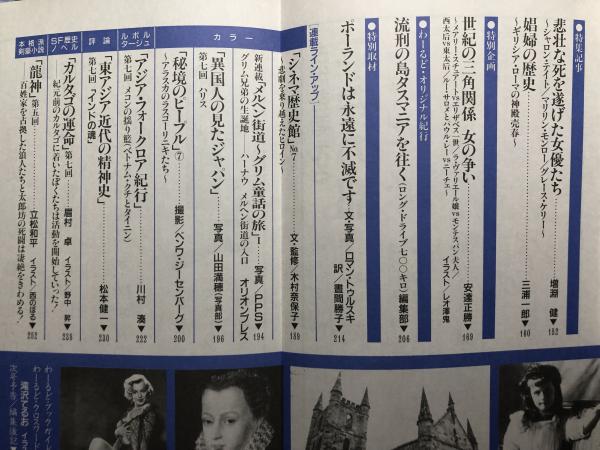 ●特別記事
悲壮な死を遂げた女優たち……増淵 健▼152
〜シャロン・テイト／マリリン・モンロー／グレース・ケリー〜
娼婦の歴史……三浦一郎▼160
〜ギリシア・ローマの神殿売春〜
●特別企画
世紀の三角関係 女の争い……安達正勝▼169
〜メアリー・スチュアートvsエリザベス一世／ラ・ヴァリエール嬢vsモンテスパン夫人／
西太后vs東太后／ルー・サロメとパウル・レーvsニーチェ〜
イラスト／レオ澤鬼
●わーるど・オリジナル紀行
流刑の島タスマニアを往く〈ロング・ドライブ七〇〇キロ〉編集部▼206
●特別取材
ポーランドは永遠に不滅です 文・写真／ロマン・トゥルスキ
訳／晝間勝子▼214
連載ラインアップ
「シネマ歴史館」No.7……文・監修／木村奈保子▼189
〜悲劇を乗り越えたヒロイン〜
カラー
新連載「メルヘン街道〜グリム童話の旅」1……写真／PPS▼194
グリム兄弟の生誕地 ハーナウ メルヘン街道の入口 オリオンプレス
「異国人の見たジャパン」……写真／山田満穂（写真部）▼196
第七回 ハリス
「秘境のピープル」⑦……撮影／ヘンワ・ジーセンバーグ▼200
〜アラスカのラスコーリニキたち〜
ルポルタージュ
「アジア・フォークロア紀行」……川村 湊▼222
第七回 メコンの揺り籃〈ベトナム・クチとタイニン〉
評論
「東アジア近代の精神史」……松本健一▼230
第七回 「インドの魂」
SFヘ歴史ノベル
「カルタゴの運命」第七回……眉村 卓 イラスト／野中 昇▼238
紀元前のカルタゴに着いたぼくたちは活動を開始していった！
本格派剣豪小説
「龍神」第五回……立松和平 イラスト／西のぼる▼252
百姓家を占拠した浪人たちと太郎坊の死闘は凄絶をきわめる！
わーるど・ブックガイド
わーるど・クロスワード
滝沢てるお イラス
次号予告／編集後記▼